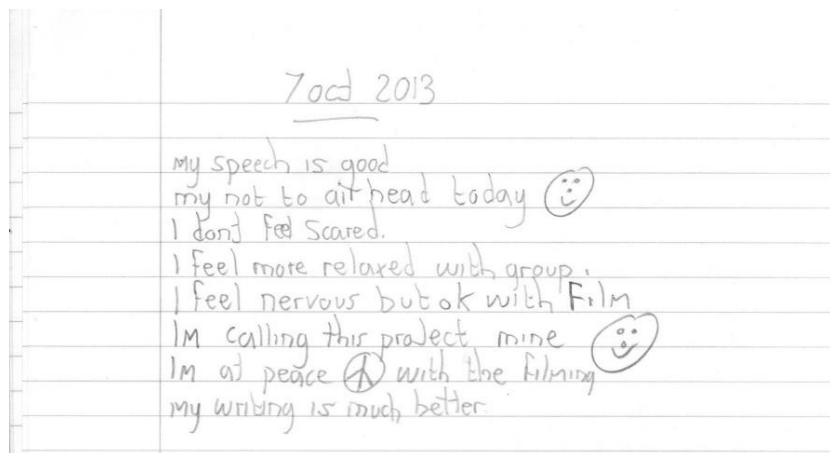 7 oct 2013
my speech is good
my not to air head today
I dont feel scared.
I feel more relaxed with group.
I feel nervous but ok with Film
Im calling this project mine
Im at peace with the filming
my writing is much better.